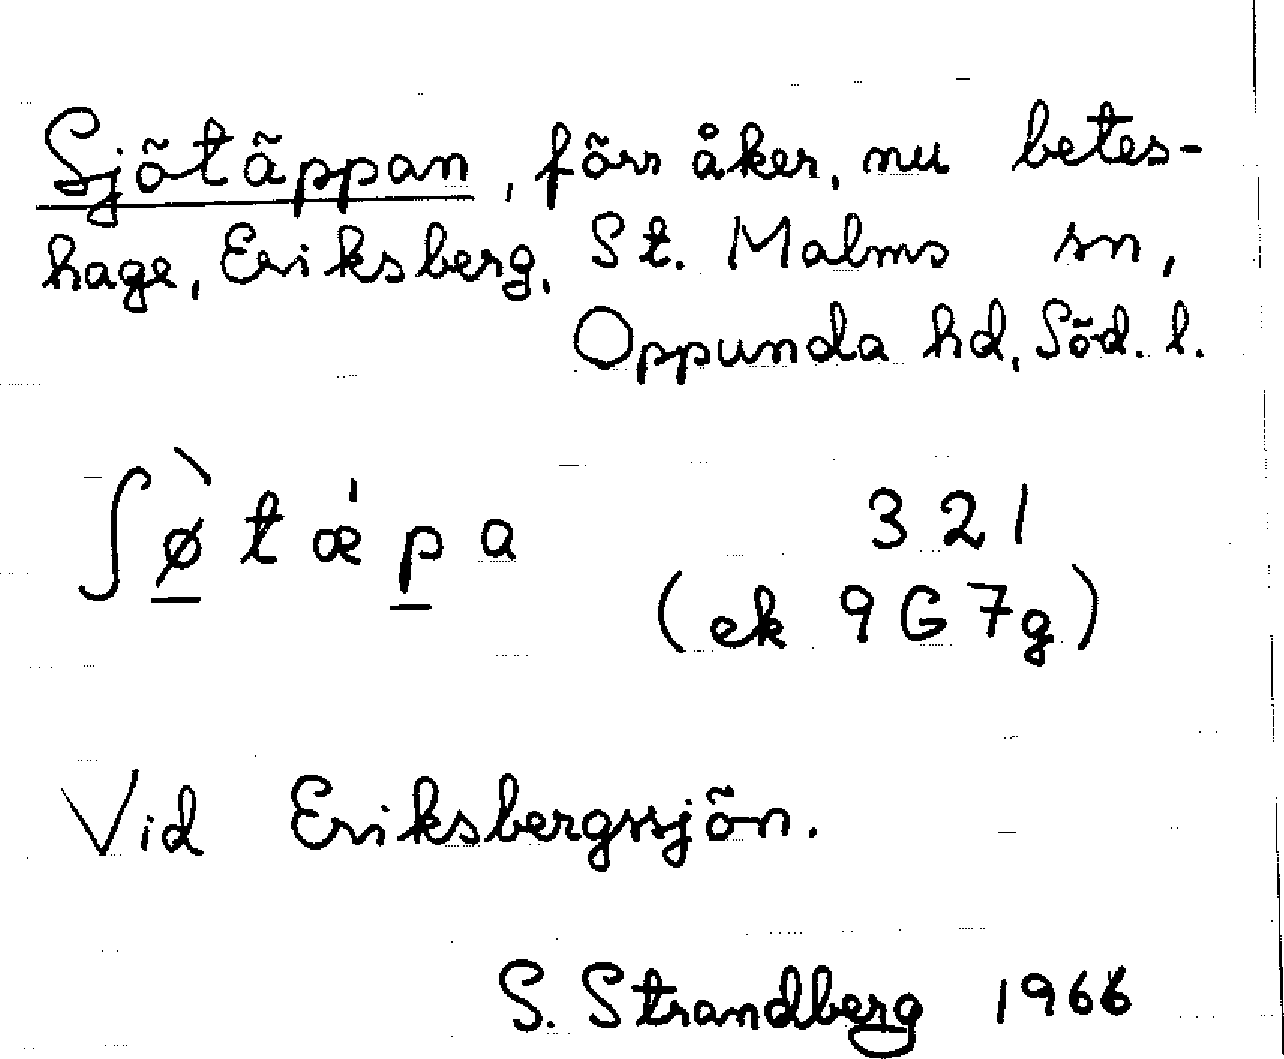 Sjötäppan, förr åker, nu betes-
hage, Eriksberg, St. Malms sn,
Oppunda hd, Söd. l.
ʃø̀tǽpa 321
(ek 9G7g)
Vid Eriksbergssjön.
S. Strandberg 1966